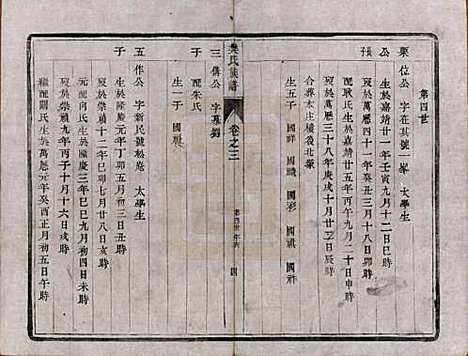 第四世
栗位公 字在其號一峯 太學生
生於嘉靖廿一年壬寅九月十二日巳時
公 歿於萬歷四十一年癸丑三月十八日卯時
張 配耿氏生於嘉靖廿五年丙午九月二十日申時
歿於萬歷三十八年庚戌十月廿三日辰時
合葬本庄樓後北塚
生五子 國祥 國璣 國彩 國禎 國祚
氏族譜 卷之三
第四世 四
三儒公 字慕劉
子 配朱氏
生一子 國
五作公 字新民號松庵 太學生
子 生於隆慶元年丁卯五月初三日丑時
歿於崇禎十二年己卯三月十八日亥時
配尚氏生於隆慶三年己巳九月初四日未時
歿於崇禎九年丙子十月十六日亥時
繼配關氏生於萬歷元年癸酉正月初五日午時